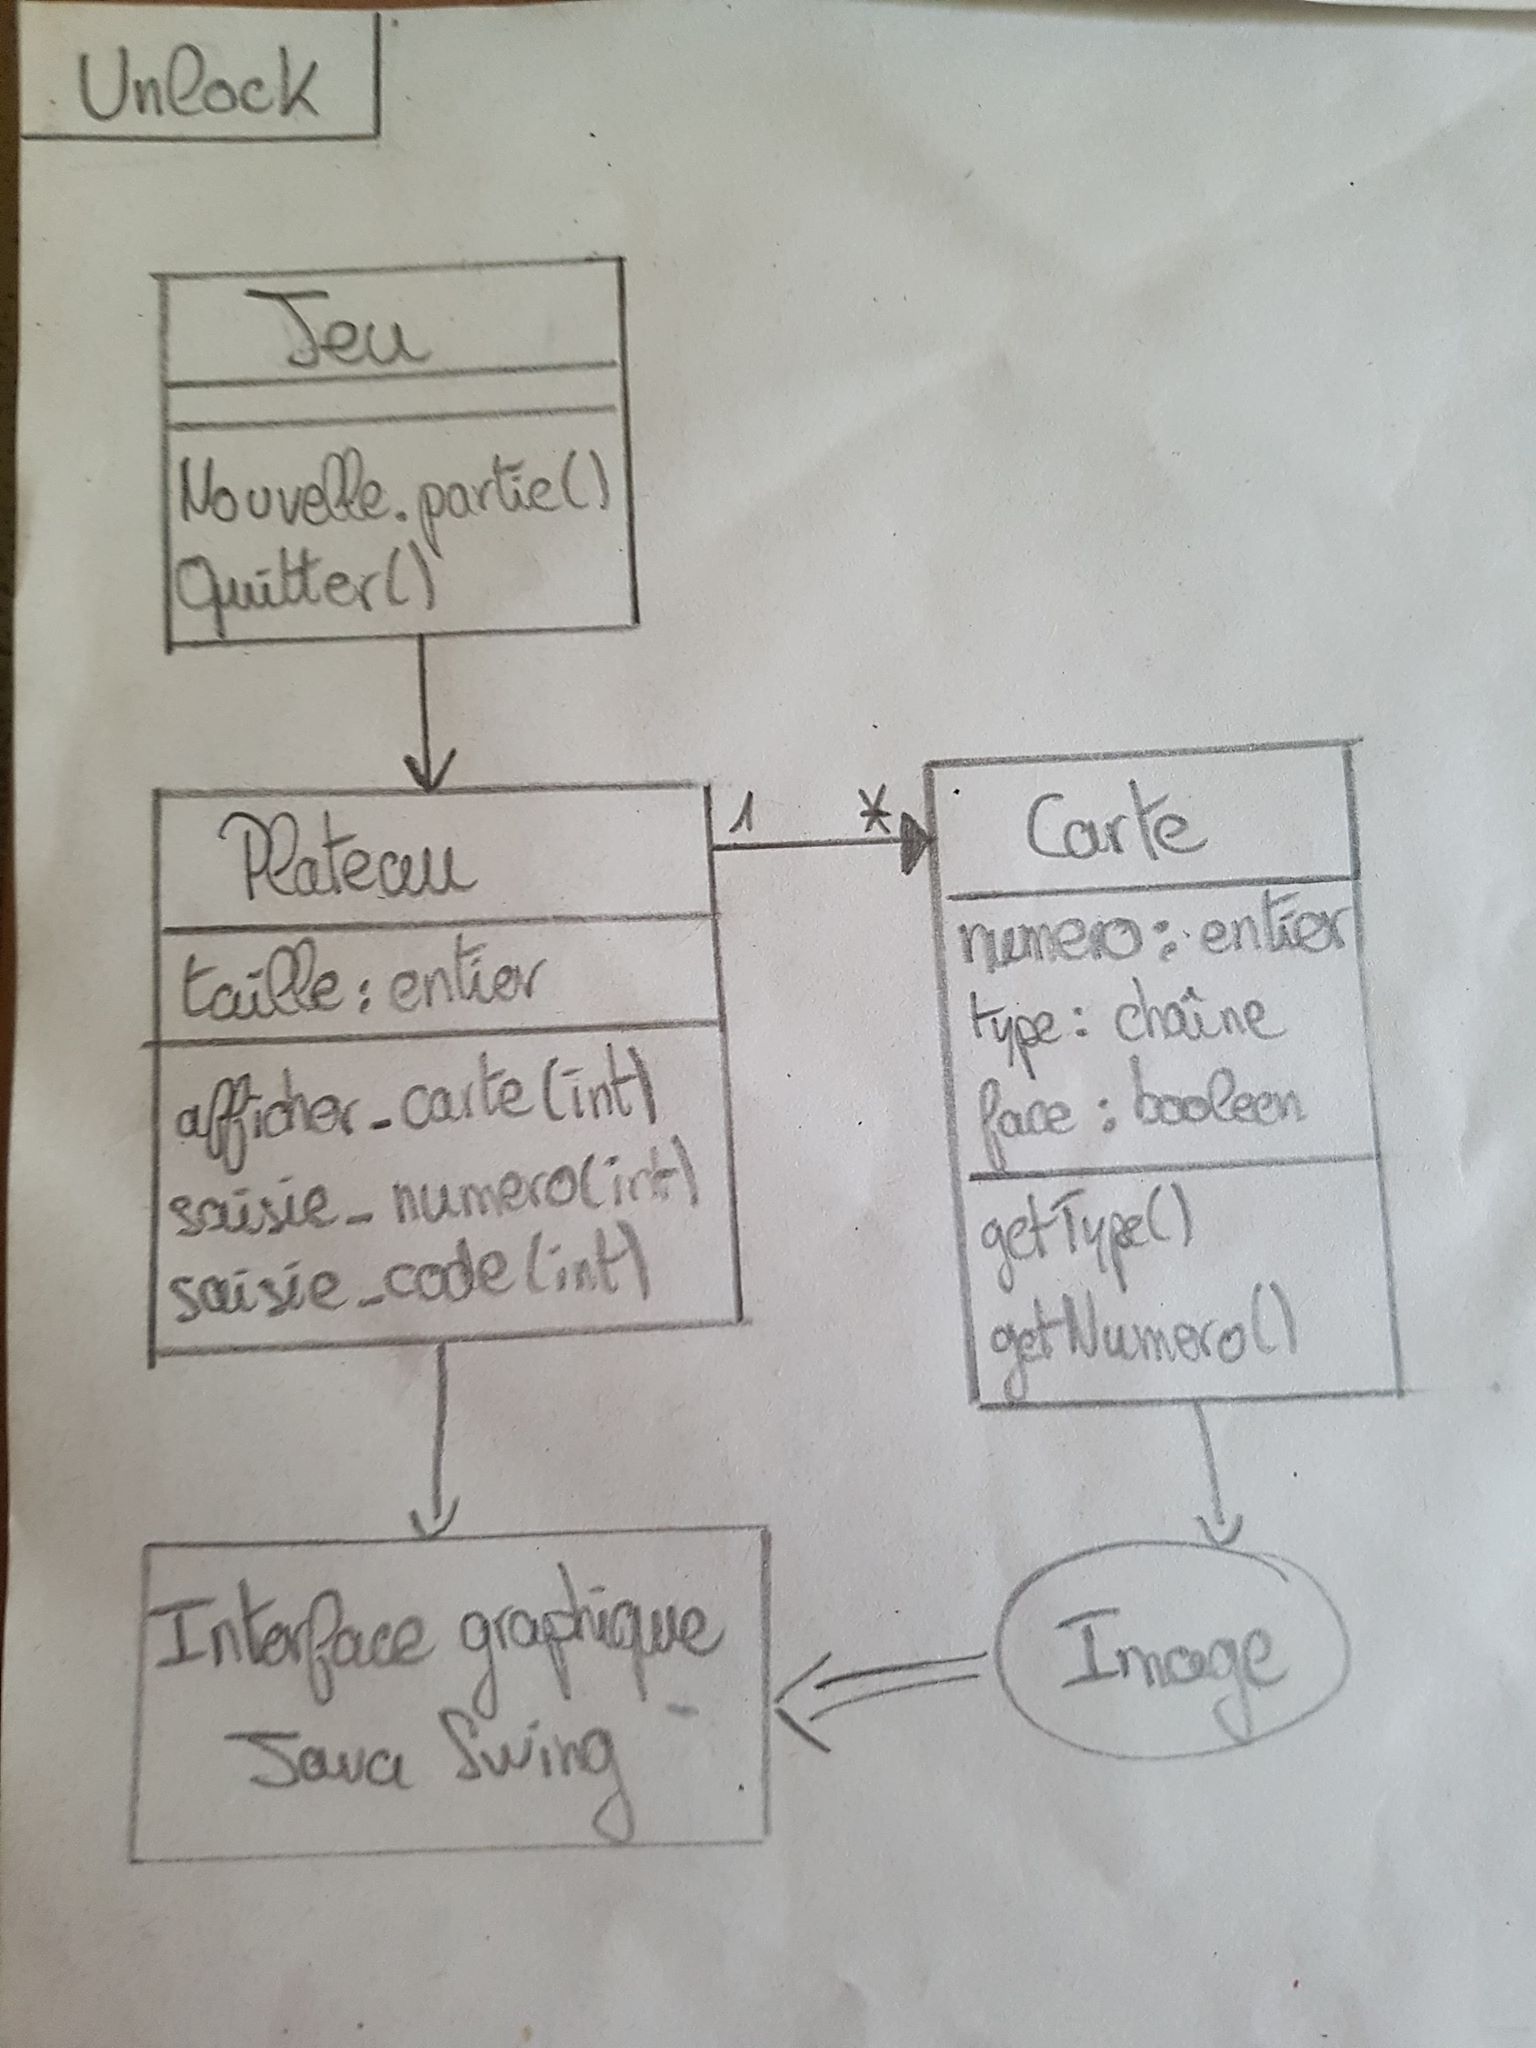 Unlock
Jeu
Nouvelle.partie()
Quitter()
Plateau
taille : entier
afficher_carte(int)
saisie_numero(int)
saisie_code(int)
1 *
Carte
numero : entier
type : chaîne
face : booleen
getType()
getNumero()
Interface graphique
Java Swing
Image